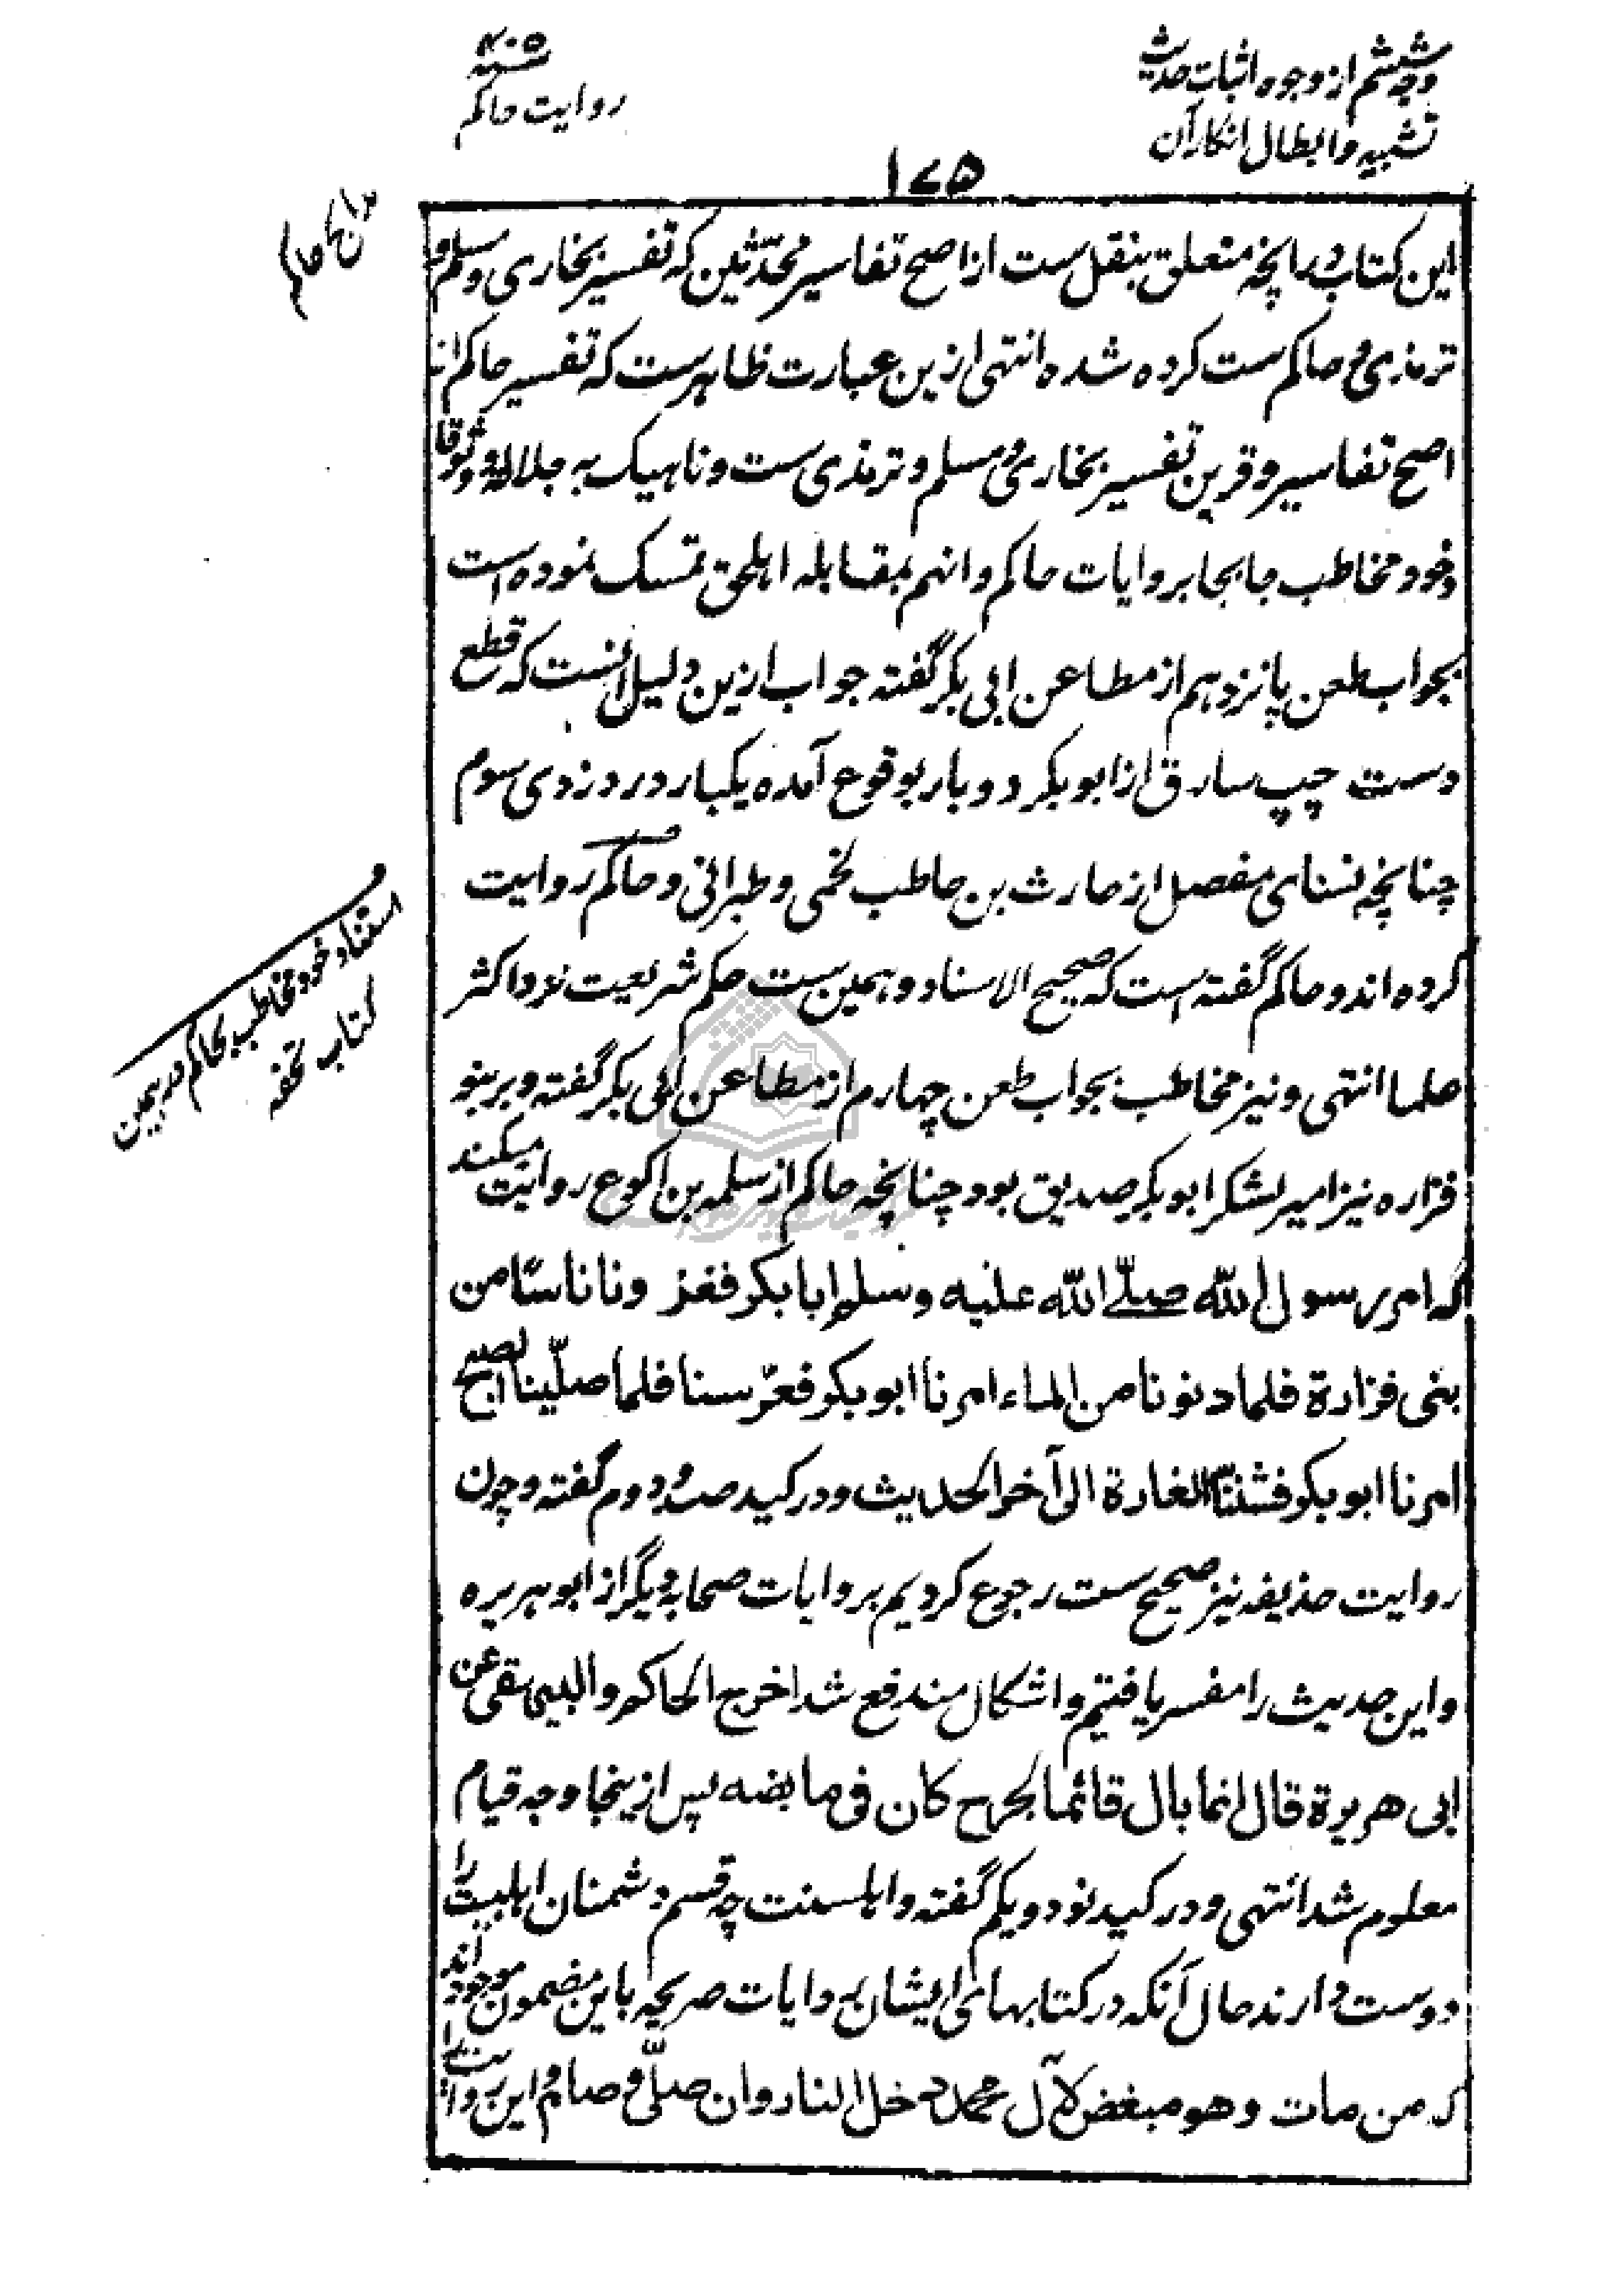 وجه ششم از وجوه اثبات حدیث
تشبیه و ابطال انکار آن
سنه ۴۰۵
روایت حاکم
۱۷۵
این کتاب در انچه متعلق بنقل ست از اصح تفاسیر محدّثین که تفسیر بخاری و مسلم و
ترمذی و حاکم ست کرده شده انتهی ازین عبارت ظاهرست که تفسیر حاکم از
اصح تفاسیر و قرین تفسیر بخاری و مسلم و ترمذی ست و ناهیک به جلالة و وثوقا
و خود مخاطب جابجا بروایات حاکم و انهم بمقابله اهلحق تمسک نموده است
بجواب طعن پانزدهم از مطاعن ابی بکر گفته جواب ازین دلیل انست که قطع
دست چپ سارق از ابو بکر دو بار بوقوع آمده یکبار در دزدی سوم
چنانچه نسنای مفصل از حارث بن حاطب لخمی و طبرانی و حاکم روایت
کرده اند و حاکم گفته است که صحیح الاسناد و همین ست حکم شریعت نزد اکثر
علما انتهی و نیز مخاطب بجواب طعن چهارم از مطاعن ابی بکر گفته و بر بنو
فزاره نیز امیر لشکر ابو بکر صدیق بود چنانچه حاکم از سلمه بن اکوع روایت میکند
که امر رسول الله صلّے الله علیه وسلم ابا بکر فغزونا ناسًا من
بنی فزارة فلما دنونا من الماء امرنا ابو بکر فعرّسنا فلما صلّینا الصبح
امرنا ابو بکر فشننّا الغارة الی آخر الحدیث و در کید صد و دوم گفته و چون
روایت حذیفه نیز صحیح ست رجوع کردیم بروایات صحابه دیگر از ابو هریره
و این حدیث را مفسر یافتیم و اشکال مندفع شد اخرج الحاکم والبیهقی عن
ابی هریرة قال انما بال قائما لجرح کان فی مابضه پس از ینجا وجه قیام
معلوم شد انتهی و در کید نود و یکم گفته و اهلسنت چه قسم دشمنان اهلبیت را
دوست دارند حال آنکه در کتابهای ایشان روایات صریحه باین مضمون موجود اند
که من مات وهو مبغض لآل محمد دخل النار وان صلّی وصام و این روایت را
استناد خود مخاطب بحاکم در همین
کتاب تحفه